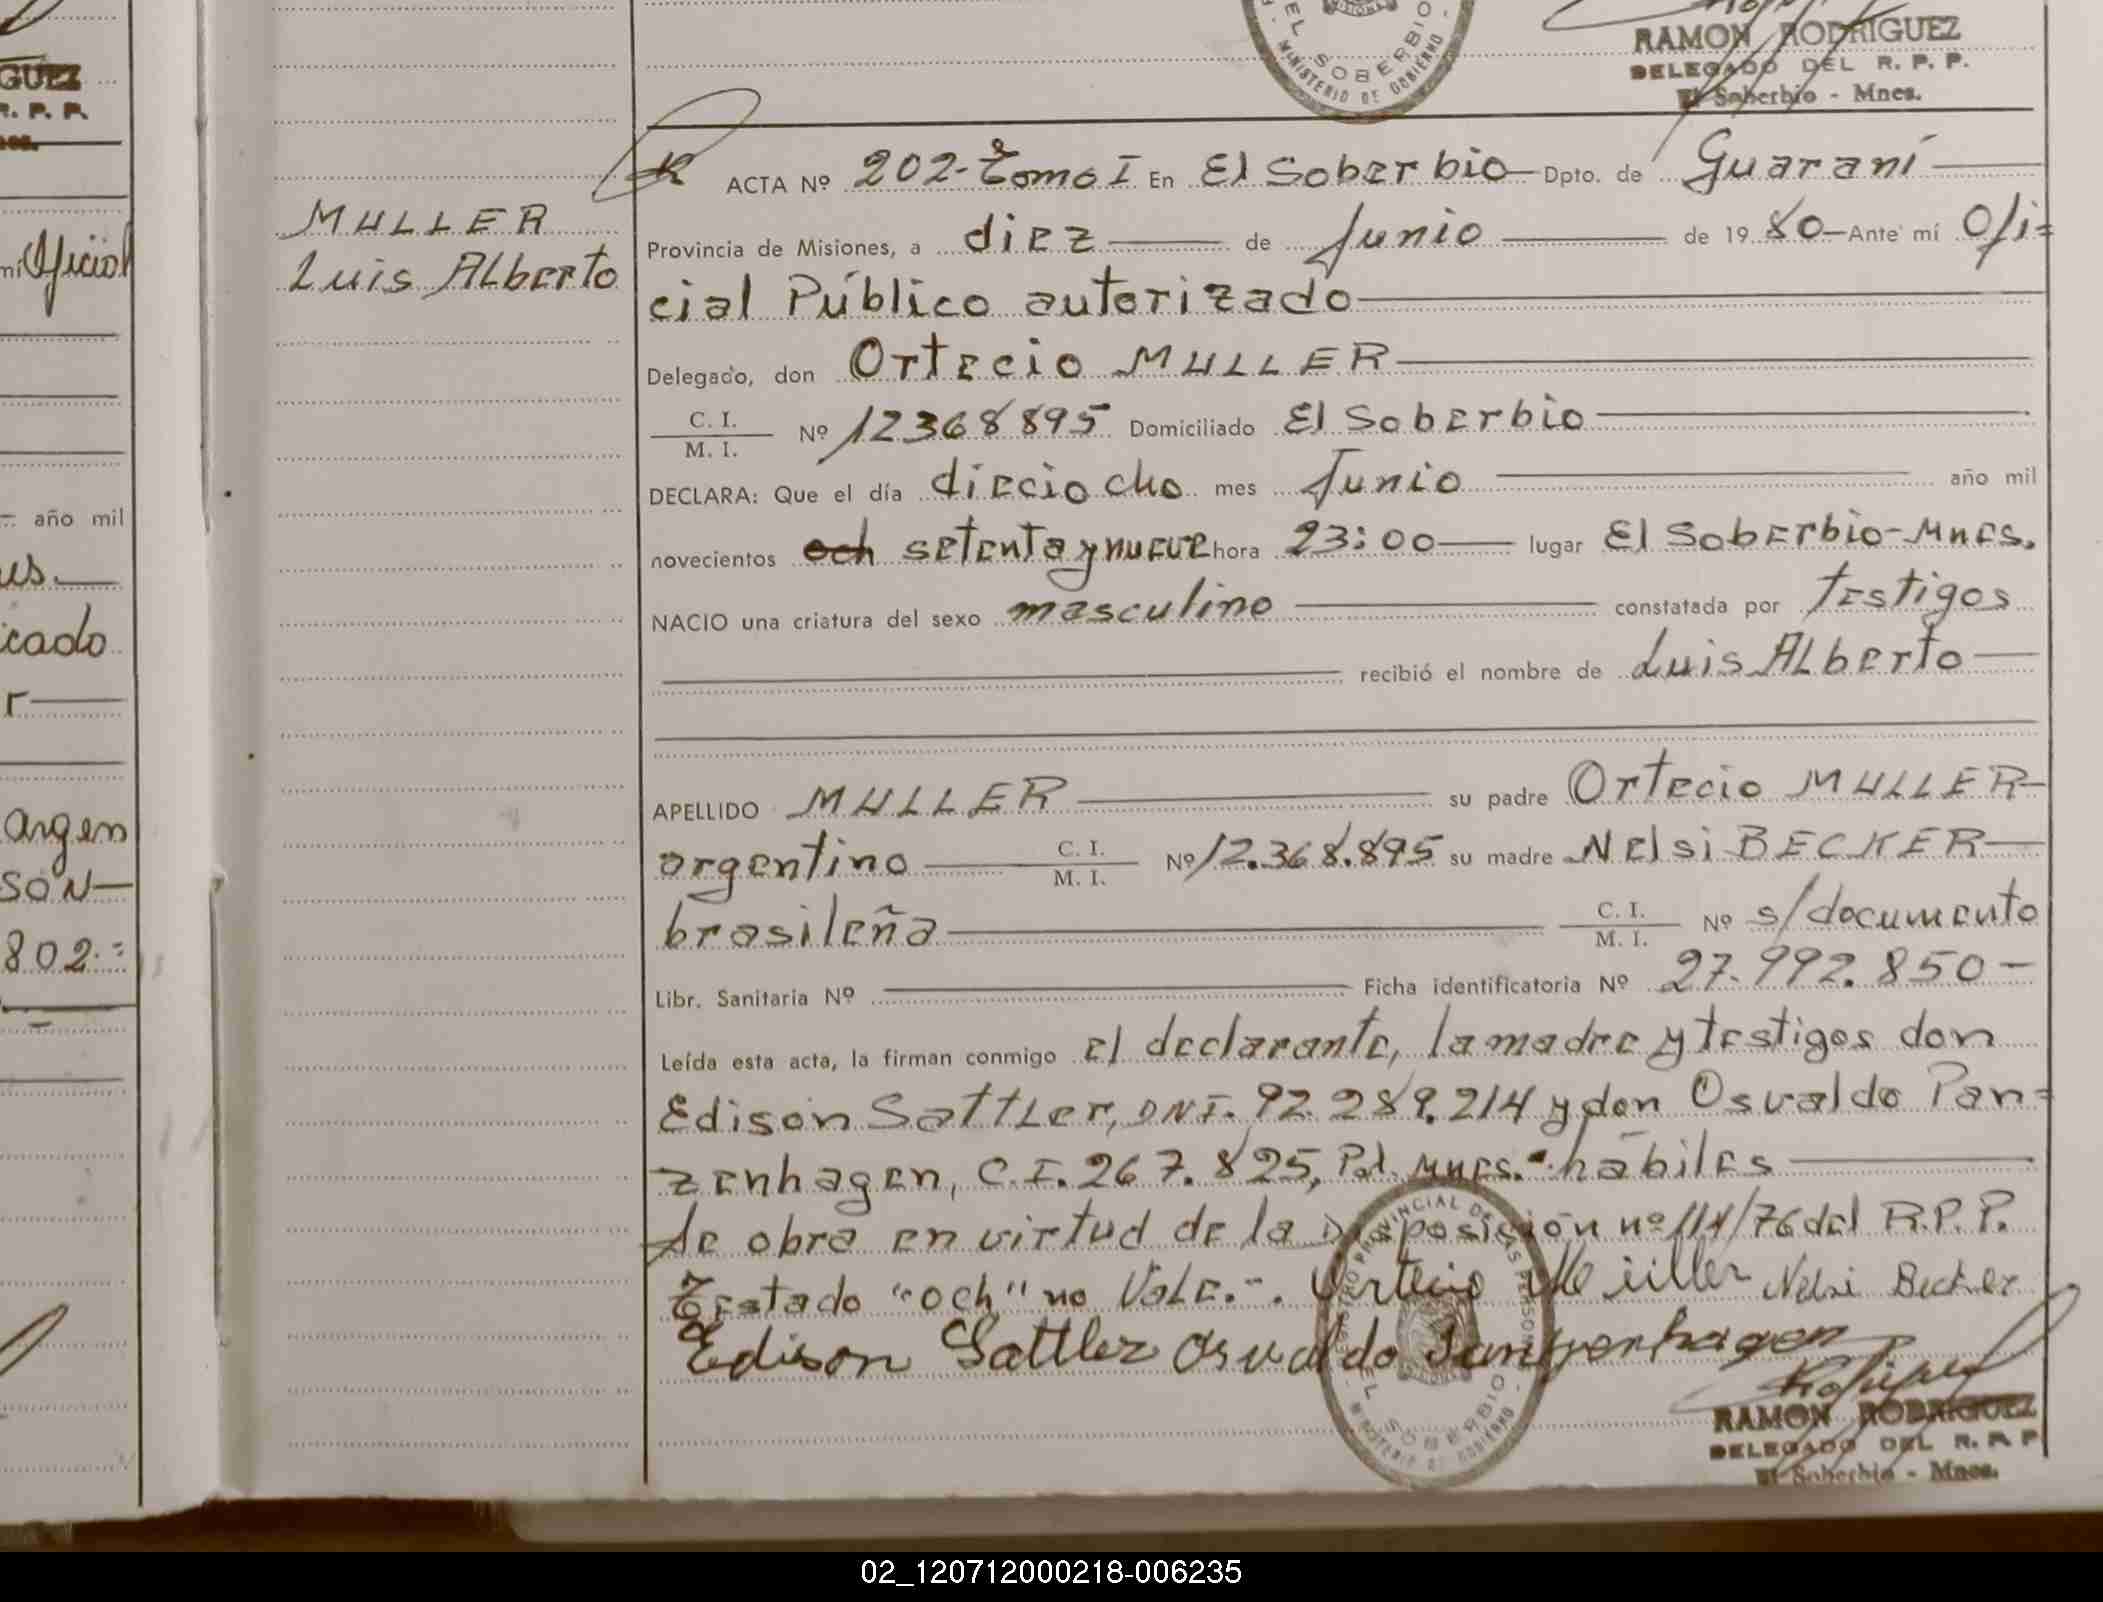 EL SOBERBIO
MINISTERIO DE GOBIERNO
RAMON RODRIGUEZ
DELEGADO DEL R. P. P.
El Soberbio - Mnes.
GUEZ
R. P. P.
mí Oficial
año mil
us.
icado
r
argen
SON
802.=
MULLER
Luis Alberto
ACTA Nº 202- Tomo I En El Soberbio Dpto. de Guaraní
Provincia de Misiones, a diez de Junio de 1980 Ante mí Ofi=
cial Público autorizado
Delegado, don Ortecio MULLER
C. I.
M. I. Nº 12368895 Domiciliado El Soberbio
DECLARA: Que el día dieciocho mes Junio año mil
novecientos och setenta y nueve hora 23:00 lugar El Soberbio-Mnes.
NACIO una criatura del sexo masculino constatada por testigos
recibió el nombre de Luis Alberto
APELLIDO MULLER su padre Ortecio MULLER
argentino C. I. M. I. Nº 12.368.895 su madre Nelsi BECKER
brasileña C. I. M. I. Nº s/documento
Libr. Sanitaria Nº Ficha identificatoria Nº 27.992.850-
Leída esta acta, la firman conmigo el declarante, la madre y testigos don
Edison Sattler, DNI. 92.289.214 y don Osvaldo Pan=
zenhagen, C.I. 267.825, Pol. Mnes.- hábiles
de obra en virtud de la Disposisión nº 114/76 del R.P.P.
Testado "och" no Vale.-. Ortecio Müller Nelsi Becker
Edison Sattler Osvaldo Panzenhagen
REGISTRO PROVINCIAL DE LAS PERSONAS
EL SOBERBIO
MINISTERIO DE GOBIERNO
RAMON RODRIGUEZ
DELEGADO DEL R. P. P.
El Soberbio - Mnes.
02_120712000218-006235